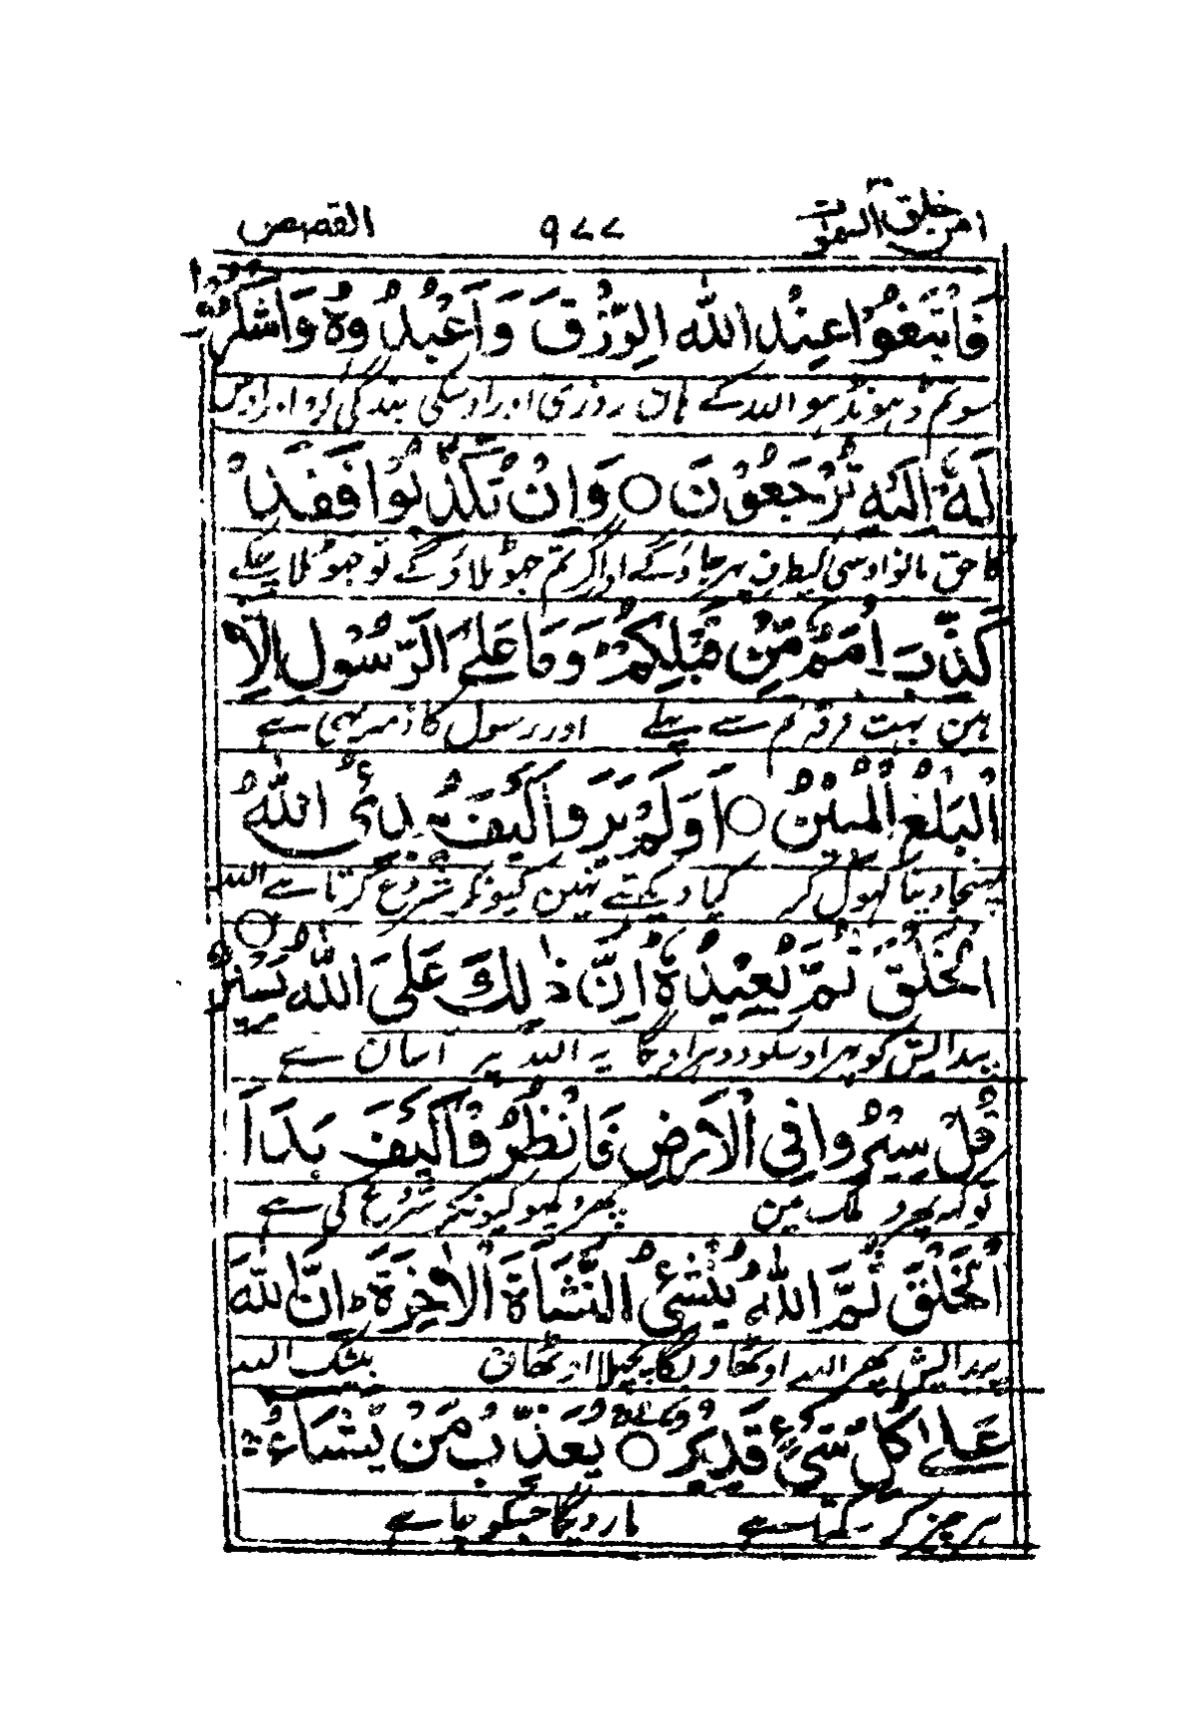 امن خلق السموت ۹۷۷ القصص
فَابْتَغُوْا عِنْدَ اللّٰهِ الرِّزْقَ وَاعْبُدُوْهُ وَاشْكُرُوْا
سو تم ڈہونڈہو اللہ کے ہاں روزی اور اوسکی بندگی کرو اور اوس
لَهٗ اِلَيْهِ تُرْجَعُوْنَ ○ وَاِنْ تُكَذِّبُوْا فَقَدْ
کا حق مانو اوسی کیطرف پہر جاؤگے اور اگر تم جہوٹلاؤگے تو جہوٹلا چکے
كَذَّبَ اُمَمٌ مِّنْ قَبْلِكُمْ وَمَا عَلَى الرَّسُوْلِ اِلَّا
ہین بہت فرقہ تم سے پہلے اور رسول کا ذمہ یہی ہے
الْبَلٰغُ الْمُبِيْنُ ○ اَوَلَمْ يَرَوْا كَيْفَ يُبْدِئُ اللّٰهُ
پہنچا دینا کہول کر کیا دیکھتے نہین کیونکر شروع کرتا ہے اللہ
الْخَلْقَ ثُمَّ يُعِيْدُهٗ اِنَّ ذٰلِكَ عَلَى اللّٰهِ يَسِيْرٌ ○
پیدایش کو پہر اوسکو دوہراویگا یہ اللہ پر آسان ہے
قُلْ سِيْرُوْا فِى الْاَرْضِ فَانْظُرُوْا كَيْفَ بَدَاَ
تو کہ پھرو ملک مین پھر دیکھو کیونکر شروع کی ہے
الْخَلْقَ ثُمَّ اللّٰهُ يُنْشِئُ النَّشْاَةَ الْاٰخِرَةَ ط اِنَّ اللّٰهَ
پیدایش پھر اللہ اوٹھاویگا پچھلا اوٹھان بیشک اللہ
عَلٰى كُلِّ شَىْءٍ قَدِيْرٌ ○ يُعَذِّبُ مَنْ يَّشَآءُ
ہر چیز کر سکتا ہے مار دیگا جسکو چاہے